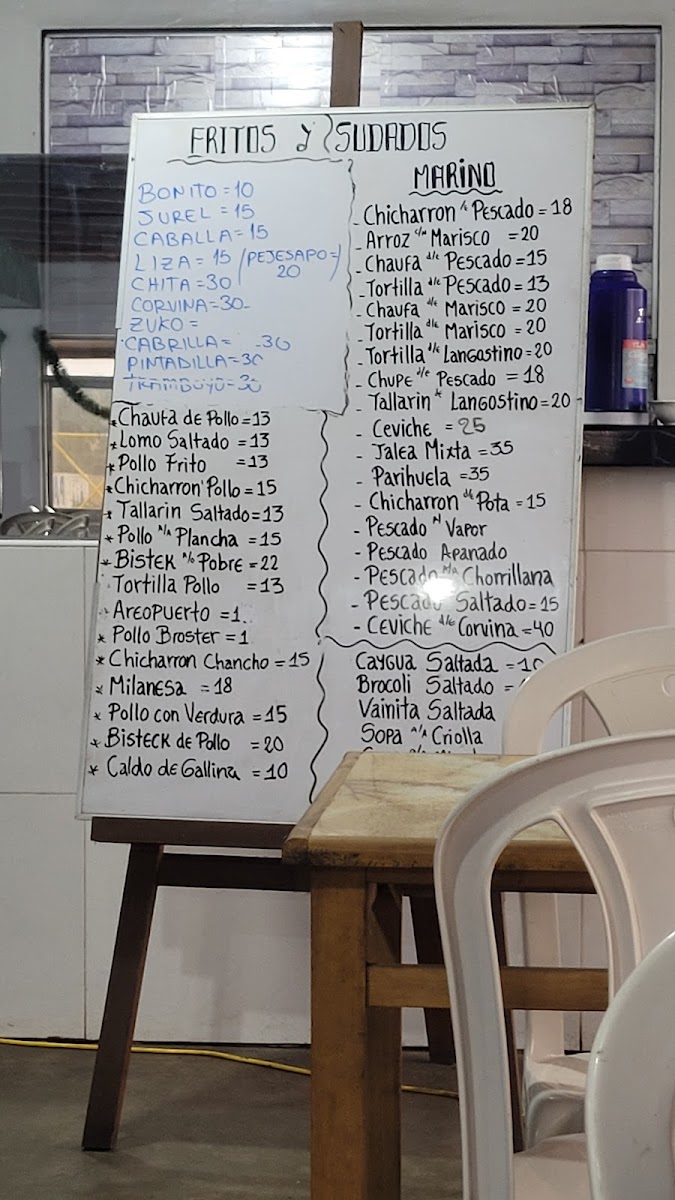 FRITOS Y SUDADOS
BONITO = 10
JUREL = 15
CABALLA = 15
LIZA = 15 (PEJESAPO =) 20
CHITA = 30
CORVINA = 30
ZUKO =
CABRILLA = 30
PINTADILLA = 30
TRAMBUYO = 30
* Chaufa de Pollo = 13
* Lomo Saltado = 13
* Pollo Frito = 13
* Chicharron Pollo = 15
* Tallarin Saltado = 13
* Pollo a/la Plancha = 15
* Bistek a/lo Pobre = 22
Tortilla Pollo = 13
* Areopuerto = 1
* Pollo Broster = 1
* Chicharron Chancho = 15
* Milanesa = 18
* Pollo con Verdura = 15
* Bisteck de Pollo = 20
* Caldo de Gallina = 10
MARINO
- Chicharron d/e Pescado = 18
- Arroz c/n Marisco = 20
- Chaufa d/e Pescado = 15
- Tortilla d/e Pescado = 13
- Chaufa d/e Marisco = 20
- Tortilla d/e Marisco = 20
- Tortilla d/e Langostino = 20
- Chupe d/e Pescado = 18
- Tallarin Langostino = 20
- Ceviche = 25
- Jalea Mixta = 35
- Parihuela = 35
- Chicharron d/e Pota = 15
- Pescado Vapor
- Pescado Apanado
- Pescado Chorrillana
- Pescado Saltado = 15
- Ceviche d/e Corvina = 40
Caygua Saltada = 10
Brocoli Saltado =
Vainita Saltada
Sopa a/la Criolla